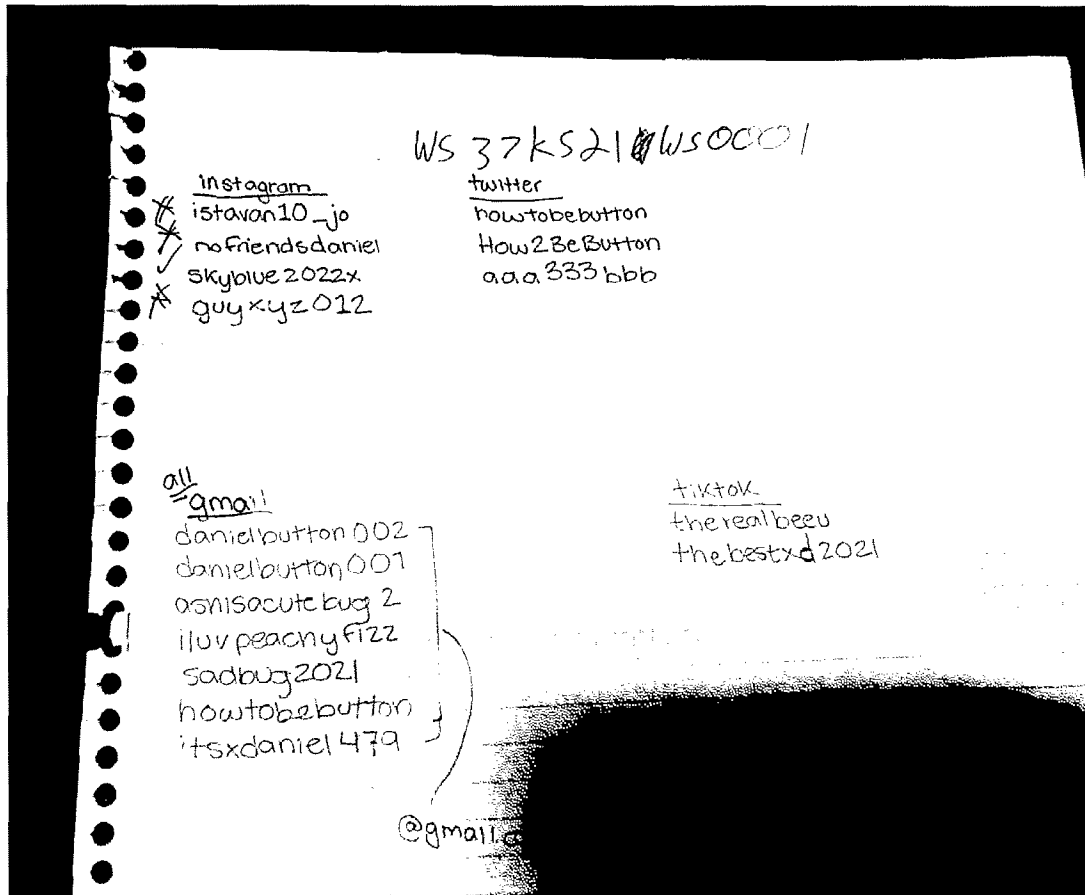 WS37KS21 WS0001
instagram
istavan10_jo
nofriendsdaniel
skyblue2022x
guyxyz012
twitter
howtobebutton
How2BeButton
aaa333bbb
all gmail
danielbutton002
danielbutton001
asnisacutebug2
iluvpeachyfizz
sadbug2021
howtobebutton
itsxdaniel479
@gmail.c
tiktok
therealbeeu
thebestxd2021